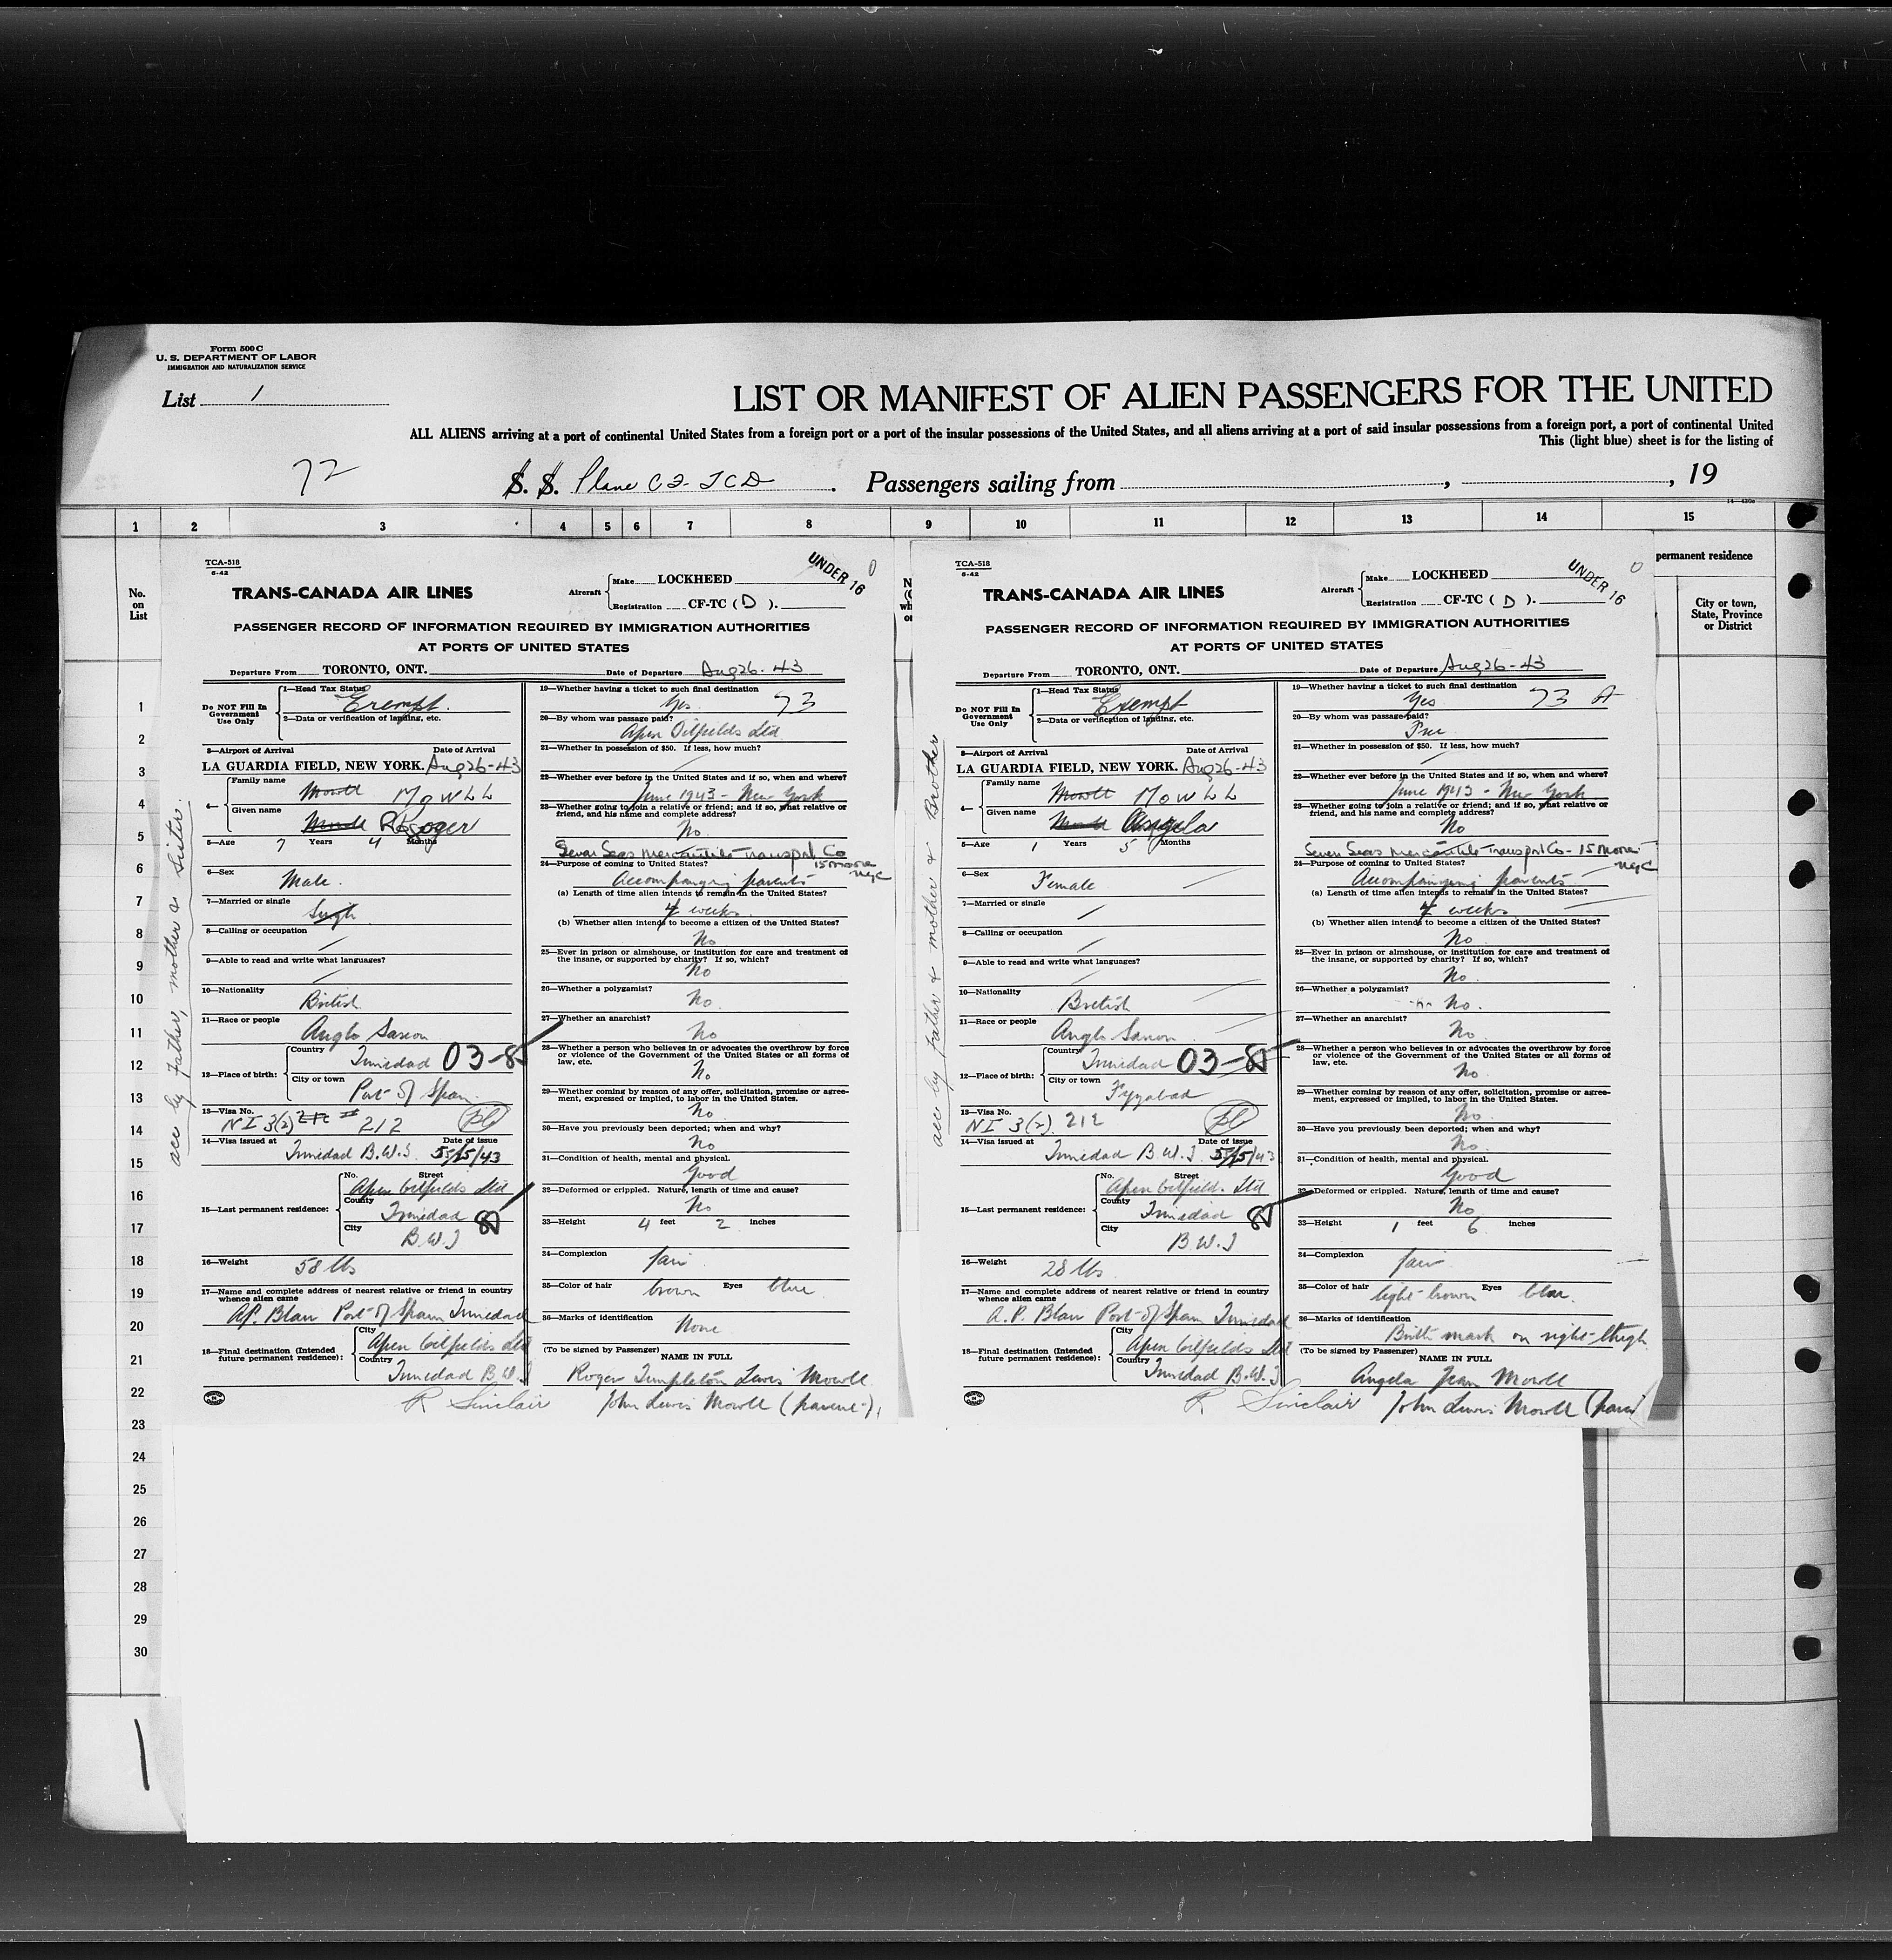 Form 500 C
U. S. DEPARTMENT OF LABOR
IMMIGRATION AND NATURALIZATION SERVICE
List 1
LIST OR MANIFEST OF ALIEN PASSENGERS FOR THE UNITED
ALL ALIENS arriving at a port of continental United States from a foreign port or a port of the insular possessions of the United States, and all aliens arriving at a port of said insular possessions from a foreign port, a port of continental United
This (light blue) sheet is for the listing of
72 S. S. Plane CF-TCD. Passengers sailing from , , 19
1 2 3 4 5 6 7 8 9 10 11 12 13 14 15
No. on List
permanent residence
City or town, State, Province or District
1
2
3
4
5
6
7
8
9
10
11
12
13
14
15
16
17
18
19
20
21
22
23
24
25
26
27
28
29
30
acc by Father, mother & Sister.
TCA-518
6-42
UNDER 16 0
TRANS-CANADA AIR LINES
Aircraft Make LOCKHEED
Registration CF-TC ( D ).
PASSENGER RECORD OF INFORMATION REQUIRED BY IMMIGRATION AUTHORITIES
AT PORTS OF UNITED STATES
Departure From TORONTO, ONT. Date of Departure Aug 26-43
Do NOT Fill In Government Use Only
1—Head Tax Status Exempt.
2—Data or verification of landing, etc.
3—Airport of Arrival Date of Arrival
LA GUARDIA FIELD, NEW YORK. Aug 26-43
4— Family name Mowll MOWLL
Given name Roger
5—Age 7 Years 4 Months
6—Sex Male.
7—Married or single Single
8—Calling or occupation /
9—Able to read and write what languages? /
10—Nationality British
11—Race or people Anglo Saxon
12—Place of birth: Country Trinidad 03-8
City or town Port of Spain
13—Visa No. NI 3(2) 212 212
14—Visa issued at Date of issue
Trinidad B.W.I. 5/15/43
15—Last permanent residence: No. Street Apex Oilfields Ltd
County Trinidad
City B.W.I
16—Weight 58 lbs
17—Name and complete address of nearest relative or friend in country whence alien came
A.P. Blair Port of Spain Trinidad
18—Final destination (Intended future permanent residence): City Apex Oilfields Ltd
Country Trinidad B.W.I
R Sinclair
19—Whether having a ticket to such final destination
Yes. 73
20—By whom was passage paid?
Apex Oilfields Ltd
21—Whether in possession of $50. If less, how much?
/
22—Whether ever before in the United States and if so, when and where?
June 1943 - New York
23—Whether going to join a relative or friend; and if so, what relative or friend, and his name and complete address?
No.
Seven Seas Mercantile Transport Co 15 Moore NYC
24—Purpose of coming to United States?
Accompanying parents
(a) Length of time alien intends to remain in the United States?
weeks.
(b) Whether alien intends to become a citizen of the United States?
No
25—Ever in prison or almshouse, or institution for care and treatment of the insane, or supported by charity? If so, which?
No
26—Whether a polygamist?
No.
27—Whether an anarchist?
No
28—Whether a person who believes in or advocates the overthrow by force or violence of the Government of the United States or all forms of law, etc.
No
29—Whether coming by reason of any offer, solicitation, promise or agreement, expressed or implied, to labor in the United States.
No
30—Have you previously been deported; when and why?
No
31—Condition of health, mental and physical.
Good
32—Deformed or crippled. Nature, length of time and cause?
No
33—Height 4 feet 2 inches
34—Complexion fair.
35—Color of hair brown Eyes blue.
36—Marks of identification None
(To be signed by Passenger)
NAME IN FULL
Roger Templeton Lewis Mowll
John Lewis Mowll (parent)
acc by father & mother & Brother
TCA-518
6-42
UNDER 16 0
TRANS-CANADA AIR LINES
Aircraft Make LOCKHEED
Registration CF-TC ( D ).
PASSENGER RECORD OF INFORMATION REQUIRED BY IMMIGRATION AUTHORITIES
AT PORTS OF UNITED STATES
Departure From TORONTO, ONT. Date of Departure Aug 26-43
Do NOT Fill In Government Use Only
1—Head Tax Status Exempt
2—Data or verification of landing, etc.
3—Airport of Arrival Date of Arrival
LA GUARDIA FIELD, NEW YORK. Aug 26-43
4— Family name Mowll MOWLL
Given name Angela
5—Age 1 Years 5 Months
6—Sex Female
7—Married or single /
8—Calling or occupation /
9—Able to read and write what languages? /
10—Nationality British
11—Race or people Anglo Saxon
12—Place of birth: Country Trinidad 03-8
City or town Fyzabad
13—Visa No. NI 3(2). 212
14—Visa issued at Date of issue
Trinidad B.W.I 5/15/43
15—Last permanent residence: No. Street Apex Oilfield. Ltd
County Trinidad
City B.W.I
16—Weight 28 lbs.
17—Name and complete address of nearest relative or friend in country whence alien came
A. P. Blair Port of Spain Trinidad
18—Final destination (Intended future permanent residence): City Apex Oilfields Ltd
Country Trinidad B.W.I
R Sinclair
19—Whether having a ticket to such final destination
Yes 73 A
20—By whom was passage paid?
21—Whether in possession of $50. If less, how much?
/
22—Whether ever before in the United States and if so, when and where?
June 1943 - New York
23—Whether going to join a relative or friend; and if so, what relative or friend, and his name and complete address?
No
Seven Seas Mercantile Transport Co - 15 Moore NYC
24—Purpose of coming to United States?
Accompanying parents
(a) Length of time alien intends to remain in the United States?
weeks
(b) Whether alien intends to become a citizen of the United States?
No.
25—Ever in prison or almshouse, or institution for care and treatment of the insane, or supported by charity? If so, which?
No.
26—Whether a polygamist?
No.
27—Whether an anarchist?
No.
28—Whether a person who believes in or advocates the overthrow by force or violence of the Government of the United States or all forms of law, etc.
No.
29—Whether coming by reason of any offer, solicitation, promise or agreement, expressed or implied, to labor in the United States.
No.
30—Have you previously been deported; when and why?
No.
31—Condition of health, mental and physical.
Good
32—Deformed or crippled. Nature, length of time and cause?
No.
33—Height 1 feet 6 inches
34—Complexion fair
35—Color of hair light brown Eyes blue.
36—Marks of identification
Birth mark on right thigh
(To be signed by Passenger)
NAME IN FULL
Angela Jean Mowll
John Lewis Mowll (parent